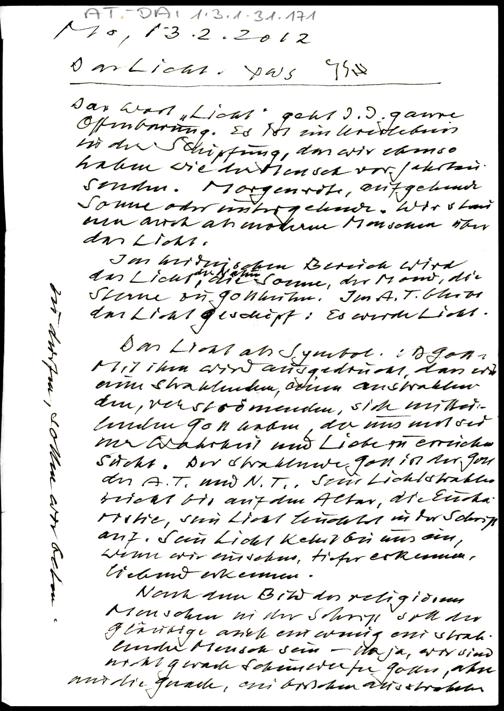 AT.-DA: 1.3.1.31.171
Mo, 13.2.2012
Das Licht.
Das Wort „Licht" geht d.d. ganze
Offenbarung. Es ist ein Urerlebnis
in der Schöpfung, das wir ebenso
haben wie der Mensch vor Jahrtau-
senden. Morgenröte, aufgehende
Sonne oder untergehende. Wir stau-
nen auch als moderne Menschen über
das Licht.
Im heidnischen Bereich wird
das Licht, die Sonne, der Mond, die
Sterne zu Gottheiten. Im A.T. bleibt
das Licht Geschöpf: Es werde Licht.
Das Licht als Symbol. : Gott
Mit ihm wird ausgedrückt, dass wir
einen strahlenden, einen ausstrahlen-
den, verströmenden, sich mittei-
lenden Gott haben, der uns mit sei-
ner Wahrheit und Liebe zu erreichen
sucht. Der strahlende Gott ist der Gott
des A.T. und N.T.. Sein Lichtstrahl
reicht bis auf den Altar, die Eucha-
ristie, sein Licht leuchtet in der Schrift
auf. Sein Licht kehrt bei uns ein,
wenn wir einsehen, tiefer erkennen,
liebend erkennen.
Nach dem Bild des religiösen
Menschen in der Schrift soll der
Gläubige auch ein wenig ein strah-
lender Mensch sein – na ja, wir sind
nicht gerade Scheinwerfer Gottes, aber
um die Gnade, ein bisschen ausstrahlen
zu dürfen, sollen wir beten.